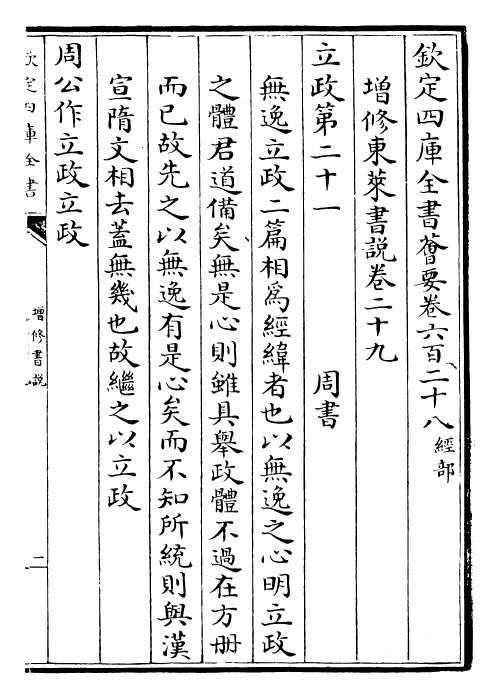 欽定四庫全書薈要卷六百二十八經部
增修東萊書説卷二十九
立政第二十一　周書
無逸立政二篇相爲經緯者也以無逸之心明立政
之體君道備矣無是心則雖具舉政體不過在方册
而已故先之以無逸有是心矣而不知所統則與漢
宣隋文相去蓋無幾也故繼之以立政
周公作立政立政
欽定四庫全書
增修書説